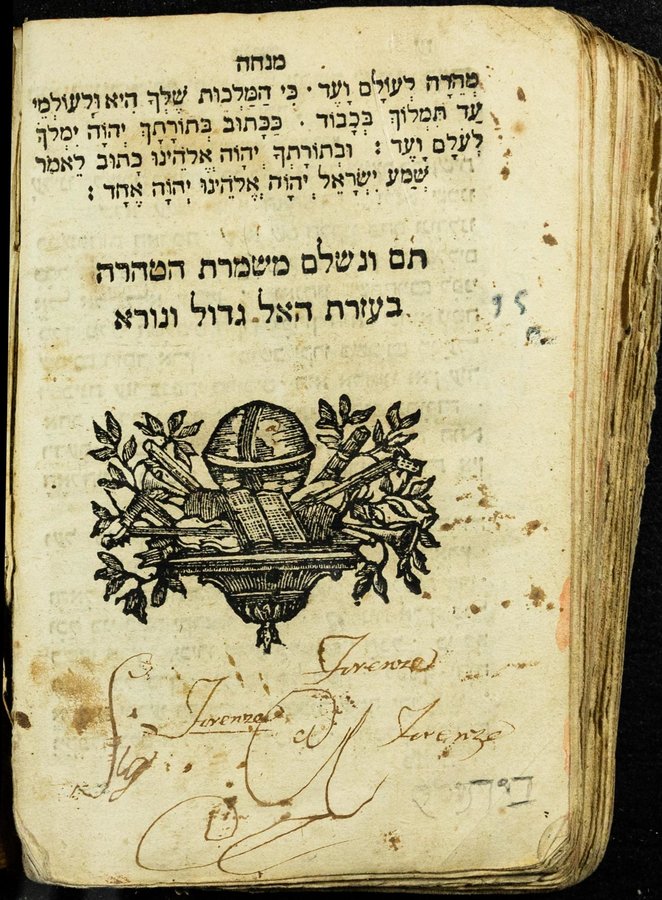 מנחה
מְהֵרָה לְעוֹלָם וָעֶד · כִּי הַמַּלְכוּת שֶׁלְּךָ הִיא וּלְעוֹלְמֵי
עַד תִּמְלוֹךְ בְּכָבוֹד · כַּכָּתוּב בְּתוֹרָתָךְ יְהוָֹה יִמְלֹךְ
לְעֹלָם וָעֶד : וּבְתוֹרָתְךָ יְהוָֹה אֱלֹהֵינוּ כָּתוּב לֵאמֹר
שְׁמַע יִשְׂרָאֵל יְהוָֹה אֱלֹהֵינוּ יְהוָֹה אֶחָד :
תם ונשלם משמרת הטהרה
בעזרת האל גדול ונורא
15
Firenze
Firenze
Firenze